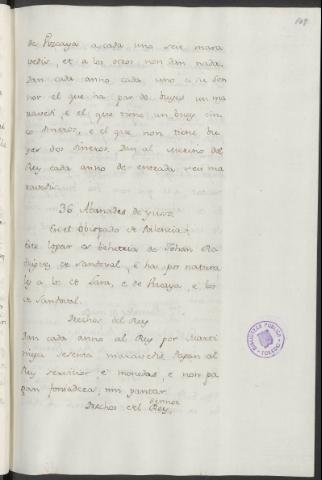 108
de Vizcaya, a cada uno seis mara
vedis, et a los otros non dan nada.
Dan cada anno cada uno a su sen
nor el que ha par de bueyes un ma
ravedi, e el que tiene un buey cin
co dineros, e el que non tiene bu
yes dos dineros. Dan al merino del
Rey cada anno de entrada seis ma
ravedis.
36
En el Obispado de Palencia.
Este logar es behetria de Johan Ro
driguez de Sandoval, e han por natura
les a los de Lara, e de Vizcaya, e los
de Sandoval.
Derechos del Rey
Dan cada anno al Rey por Marti
niega sesenta maravedis. Pagan al
Rey servicios e monedas, e non pa
gan fonsadera, nin yantar.
Derechos del Rey. sennor
BIBLIOTECA PUBLICA
TOLEDO